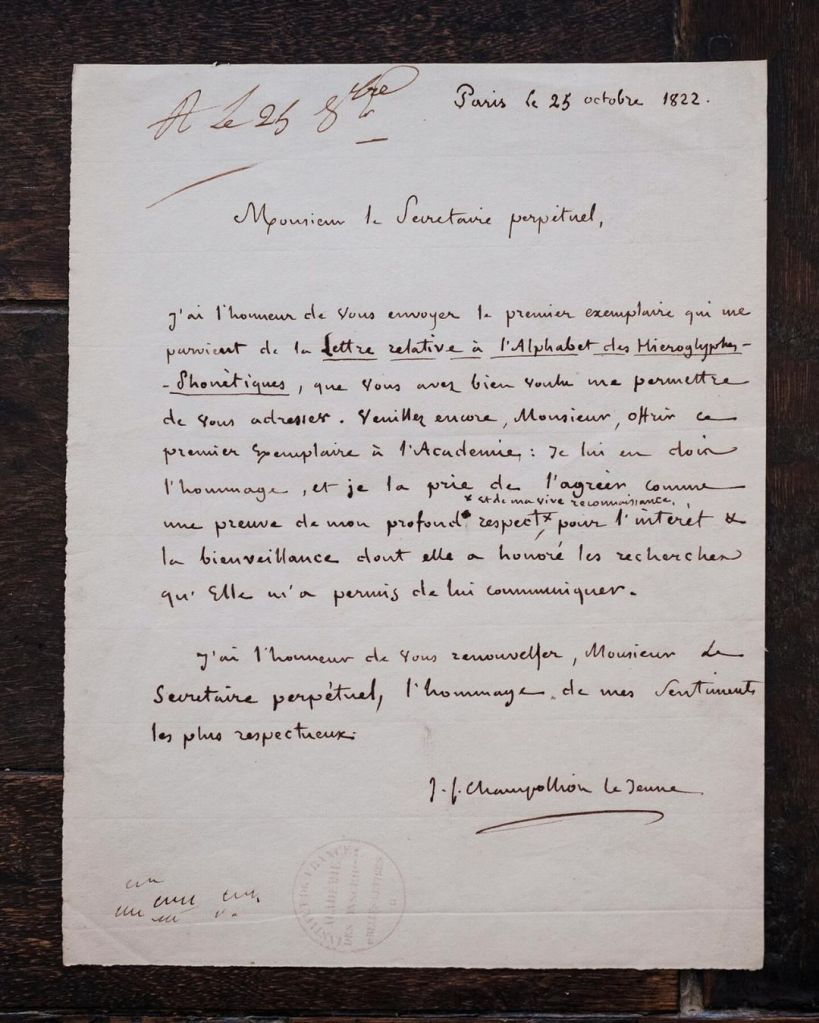 R Le 25 8bre
Paris le 25 octobre 1822.
Monsieur le Secretaire perpétuel,
J'ai l'honneur de vous envoyer le premier exemplaire qui me
parvient de la Lettre relative à l'Alphabet des Hieroglyphes-
-Phonètiques, que vous avez bien voulu me permettre
de vous adresser. Veuillez encore, Monsieur, offrir ce
premier Exemplaire à l'Academie; Je lui en dois
l'hommage, et je la prie de l'agréer comme
x et de ma vive reconnaissance,
une preuve de mon profond respect x pour l'intérêt &
la bienveillance dont elle a honoré les recherches
qu'Elle m'a permis de lui communiquer.
J'ai l'honneur de vous renouveller, Monsieur Le
Secretaire perpétuel, l'hommage de mes Sentiments
les plus respectueux.
J. f. Champollion le Jeune
INSTITUT DE FRANCE
ACADÉMIE
DES INSCRIP
BELLES LETTRES